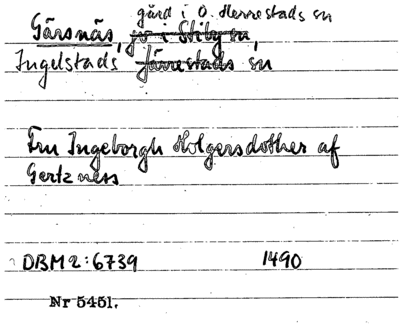 gård i Ö. Herrestads sn
Gärsnäs, js i Stiby sn,
Ingelstads Järrestads sn
Fru Ingeborgh Holgersdother af
Gertzness
DBM 2:6739 1490
Nr 5451.